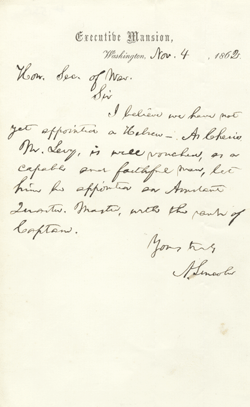 Executive Mansion,
Washington, Nov. 4, 1862.
Hon. Sec. of War.
Sir
I believe we have not
yet appointed a Hebrew— As
Mr. Levy, is well vouched, as a
capable and faithful man, let
him be appointed an Assistant
Quarter-Master, with the rank of
Captain.
Yours truly
A. Lincoln